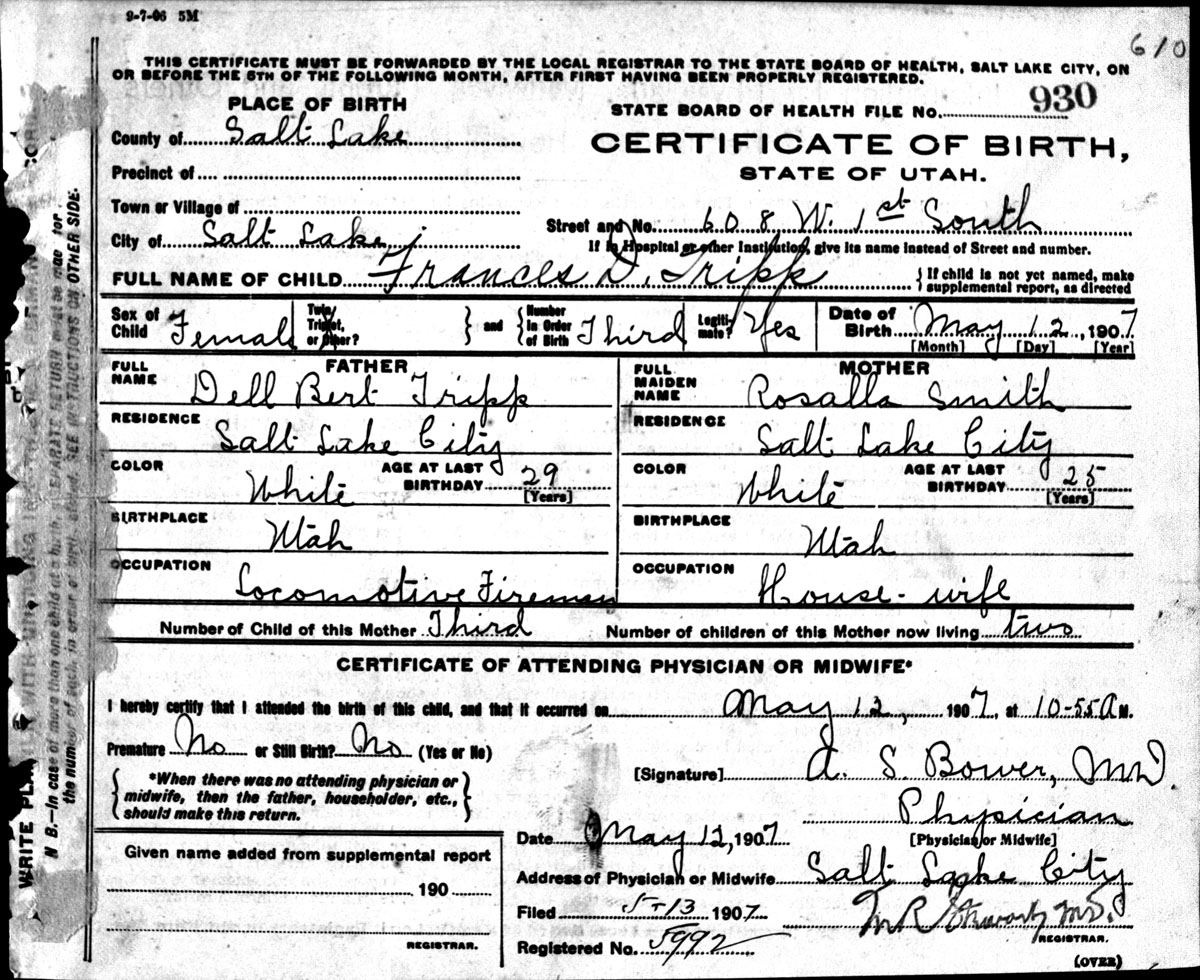 9-7-06 5M
610
THIS CERTIFICATE MUST BE FORWARDED BY THE LOCAL REGISTRAR TO THE STATE BOARD OF HEALTH, SALT LAKE CITY, ON
OR BEFORE THE 5TH OF THE FOLLOWING MONTH, AFTER FIRST HAVING BEEN PROPERLY REGISTERED.
PLACE OF BIRTH
STATE BOARD OF HEALTH FILE No. 930
County of Salt Lake
CERTIFICATE OF BIRTH,
STATE OF UTAH.
Precinct of
Town or Village of
Street and No. 608 W. 1st South
City of Salt Lake
If in Hospital or other Institution, give its name instead of Street and number.
FULL NAME OF CHILD Frances D. Tripp
If child is not yet named, make
supplemental report, as directed
Sex of Child Female
Twin, Triplet, or Other?
and
Number in Order of Birth Third
Legiti-mate? Yes
Date of Birth May 12, 1907
[Month] [Day] [Year]
FATHER
FULL NAME Dell Bert Tripp
RESIDENCE Salt Lake City
COLOR White
AGE AT LAST BIRTHDAY 29
[Years]
BIRTHPLACE Utah
OCCUPATION Locomotive Fireman
MOTHER
FULL MAIDEN NAME Rosalla Smith
RESIDENCE Salt Lake City
COLOR White
AGE AT LAST BIRTHDAY 25
[Years]
BIRTHPLACE Utah
OCCUPATION House-wife
Number of Child of this Mother Third
Number of children of this Mother now living two
CERTIFICATE OF ATTENDING PHYSICIAN OR MIDWIFE*
I hereby certify that I attended the birth of this child, and that it occurred on May 12, 1907, at 10-55 A M.
Premature No or Still Birth? No (Yes or No)
*When there was no attending physician or
midwife, then the father, householder, etc.,
should make this return.
[Signature] A. S. Bower, MD
Physician
[Physician or Midwife]
Date May 12, 1907
Address of Physician or Midwife Salt Lake City
Filed 5-13 1907
REGISTRAR.
Registered No. 5992
(OVER)
Given name added from supplemental report
190
REGISTRAR.
WRITE PLAINLY WITH
N B.—In case of more than one child at a birth, a SEPARATE RETURN must be made for
the number of each, in order of birth, stated. SEE INSTRUCTIONS ON OTHER SIDE.